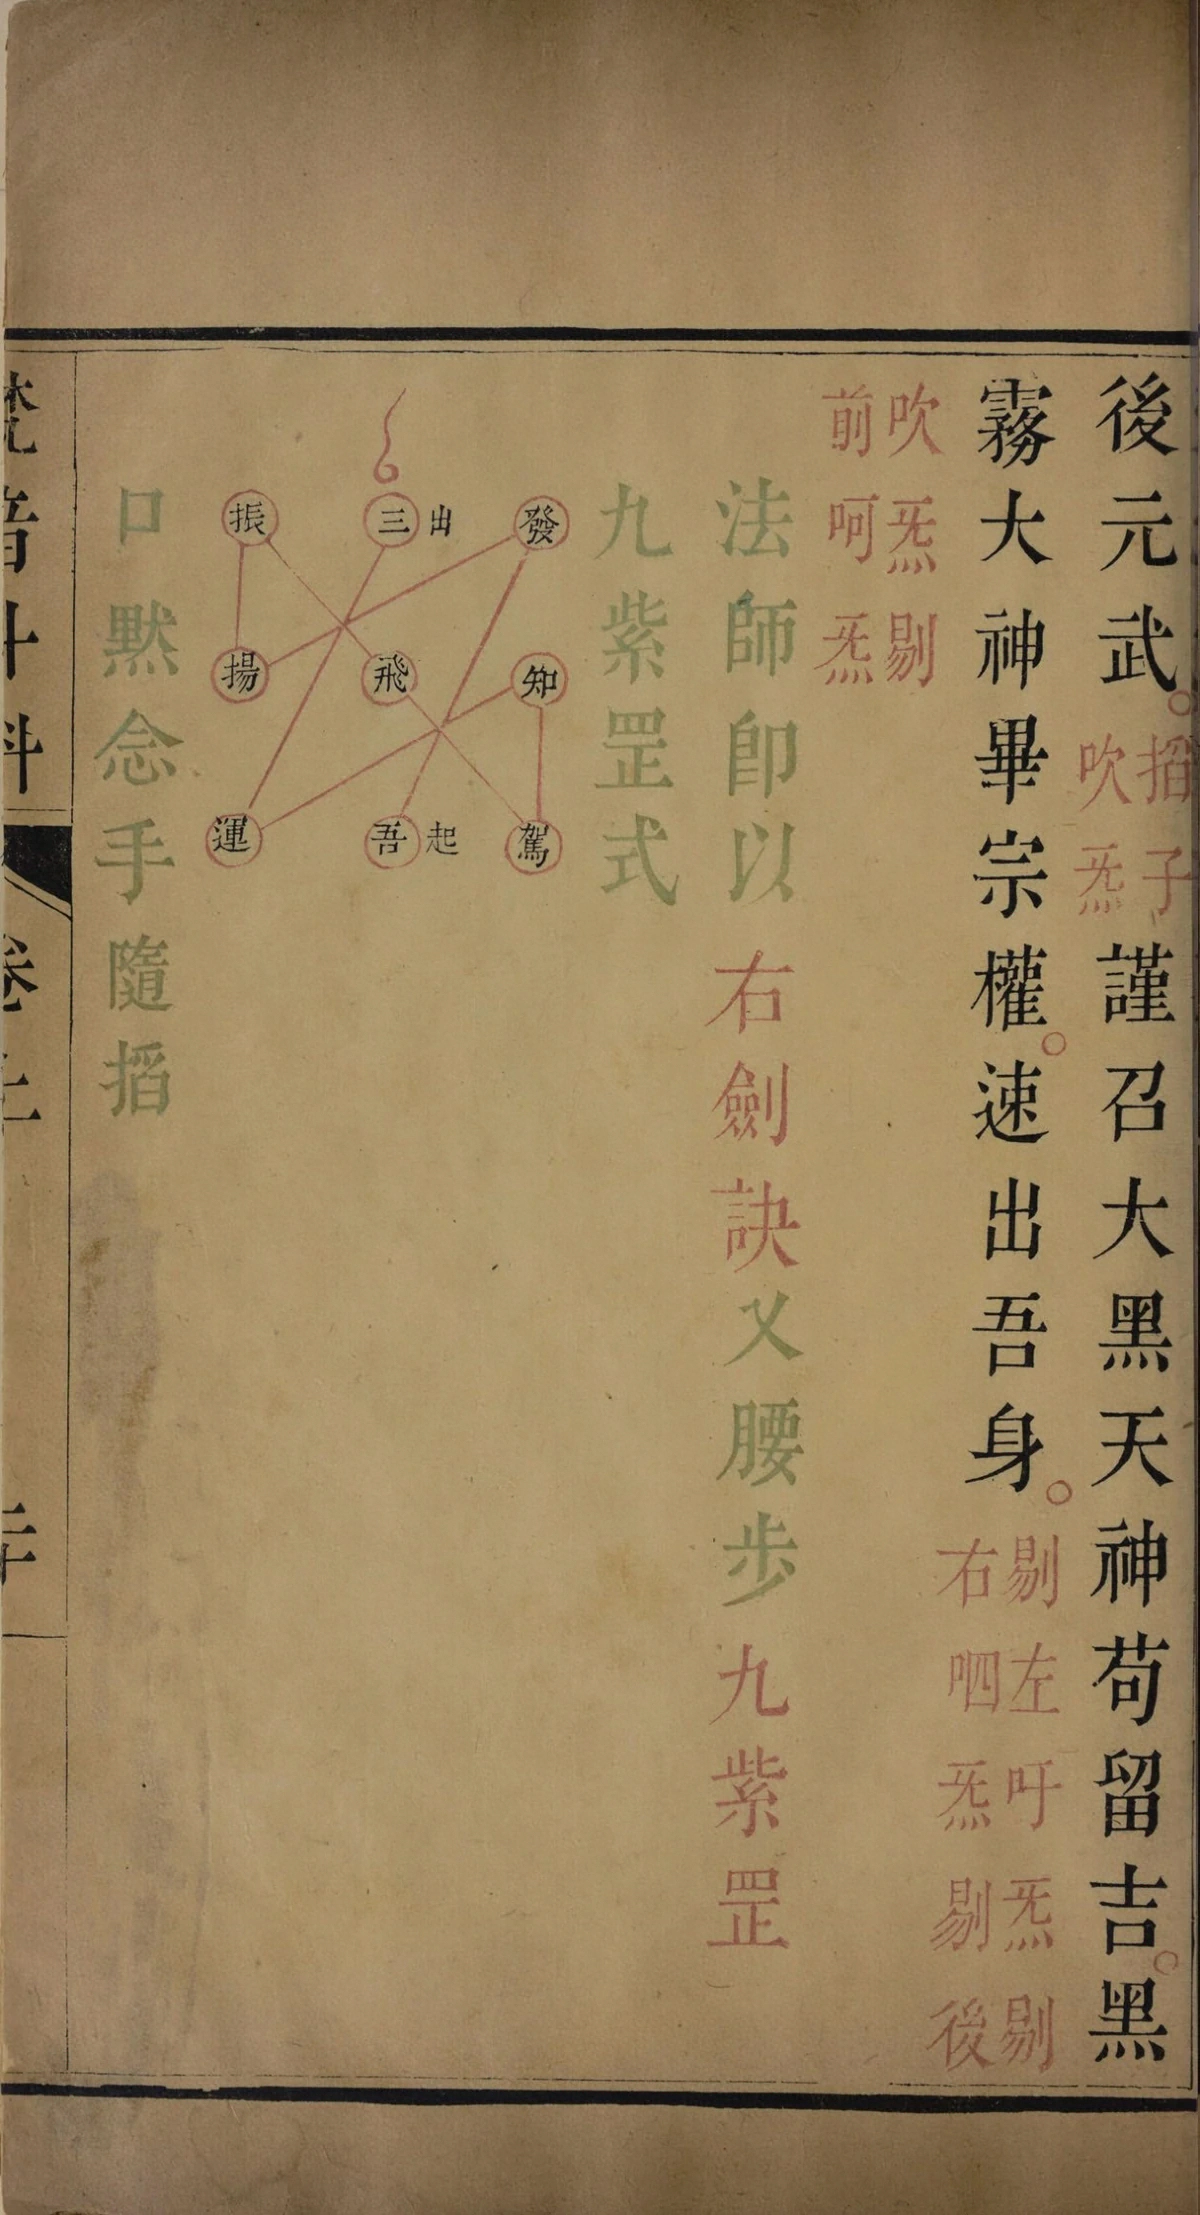 後元武。掐子吹炁謹召大黑天神苟留吉。黑
霧大神畢宗權。速出吾身。剔左吁炁剔右呬炁剔後
吹炁剔前呵炁
法師卽以右劍訣又腰步九紫罡
九紫罡式
發 三出 振
知 飛 揚
駕 吾起 運
口默念手隨掐
梵音斗科 卷上 二十